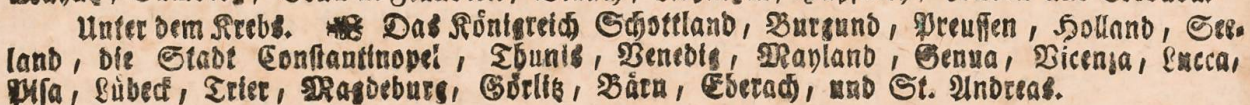 Unter dem Krebs. 🦀 Das Königreich Schottland, Burgund, Preussen, Holland, See-
land, die Stadt Constantinopel, Thunis, Venedig, Mayland, Genua, Vicenza, Lucca,
Pisa, Lübeck, Trier, Magdeburg, Görlitz, Bärn, Eberach, und St. Andreas.